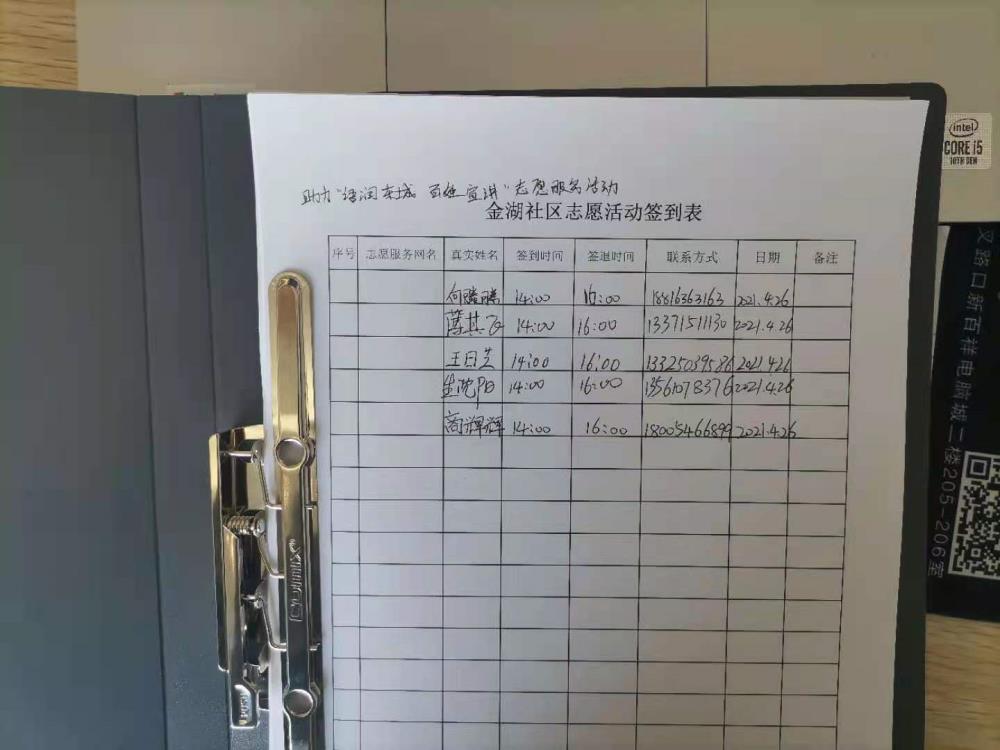 助力"语润东城 百姓宣讲"志愿服务活动
金湖社区志愿活动签到表
序号 志愿服务网名 真实姓名 签到时间 签退时间 联系方式 日期 备注
何腾腾 14:00 16:00 18816363163 2021.4.26
薄其飞 14:00 16:00 13371511130 2021.4.26
王日芝 14:00 16:00 13325039586 2021.4.26
生沈阳 14:00 16:00 13561078376 2021.4.26
商辉辉 14:00 16:00 18005466899 2021.4.26
intel
CORE i5
10TH GEN
叉路口新百祥电脑城二楼205-206室
Comix